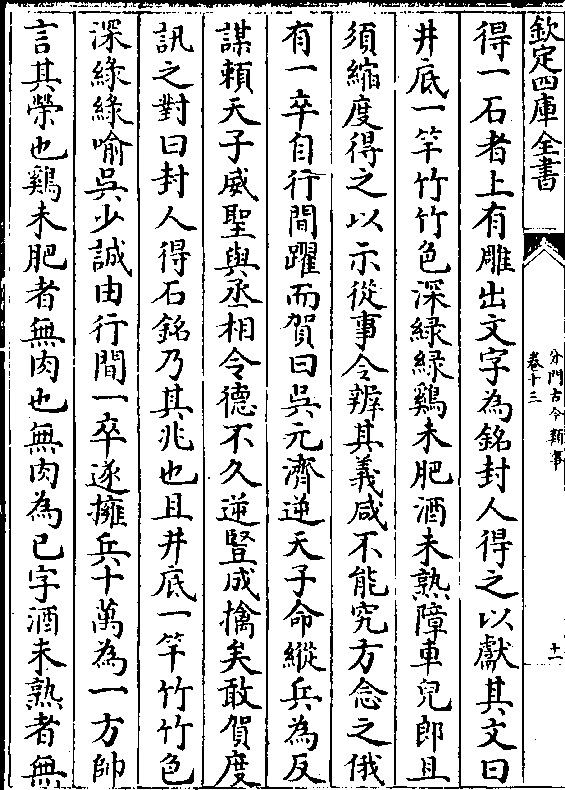 欽定四庫全書
分門古今類事
卷十三
十一
得一石者上有雕出文字為銘封人得之以獻其文曰
井底一竿竹竹色深緑緑鷄未肥酒未熟障車兒郎且
須縮度得之以示從事令辨其義咸不能究方念之俄
有一卒自行間躍而賀曰吳元濟逆天子命縱兵為反
謀賴天子威聖與丞相令德不久逆豎成擒矣敢賀度
訊之對曰封人得石銘乃其兆也且井底一竿竹竹色
深綠綠喻吳少誠由行間一卒遂擁兵十萬為一方帥
言其榮也鷄未肥者無肉也無肉為已字酒未熟者無